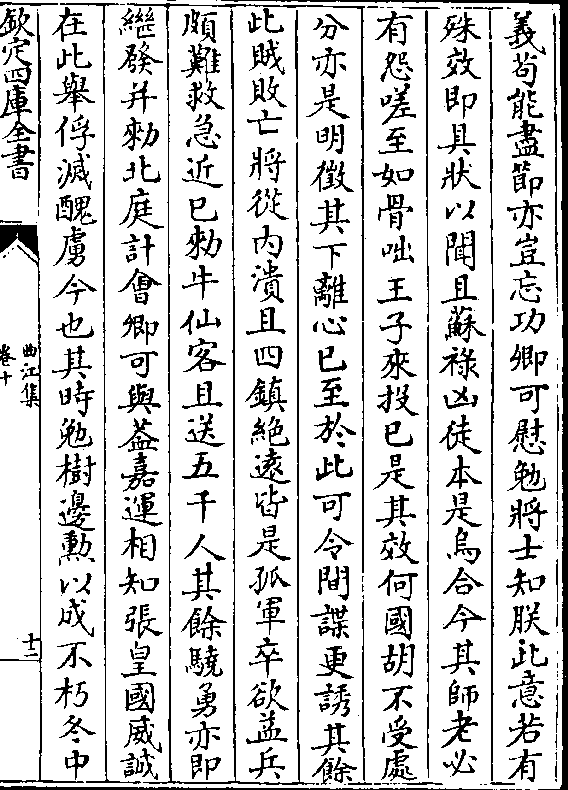 義苟能盡節亦豈忘功卿可慰勉將士知朕此意若有
殊效即具狀以聞且蘇祿凶徒本是烏合今其師老必
有怨嗟至如骨咄王子來投已是其效何國胡不受處
分亦是明徵其下離心已至於此可令間諜更誘其餘
此賊敗亡將從內潰且四鎮絶遠皆是孤軍卒欲益兵
頗難救急近已勑牛仙客且送五千人其餘驍勇亦即
繼發并勑北庭計會卿可與葢嘉運相知張皇國威誠
在此舉俘滅醜虜今也其時勉樹邊勲以成不朽冬中
欽定四庫全書
曲江集
卷十
十二